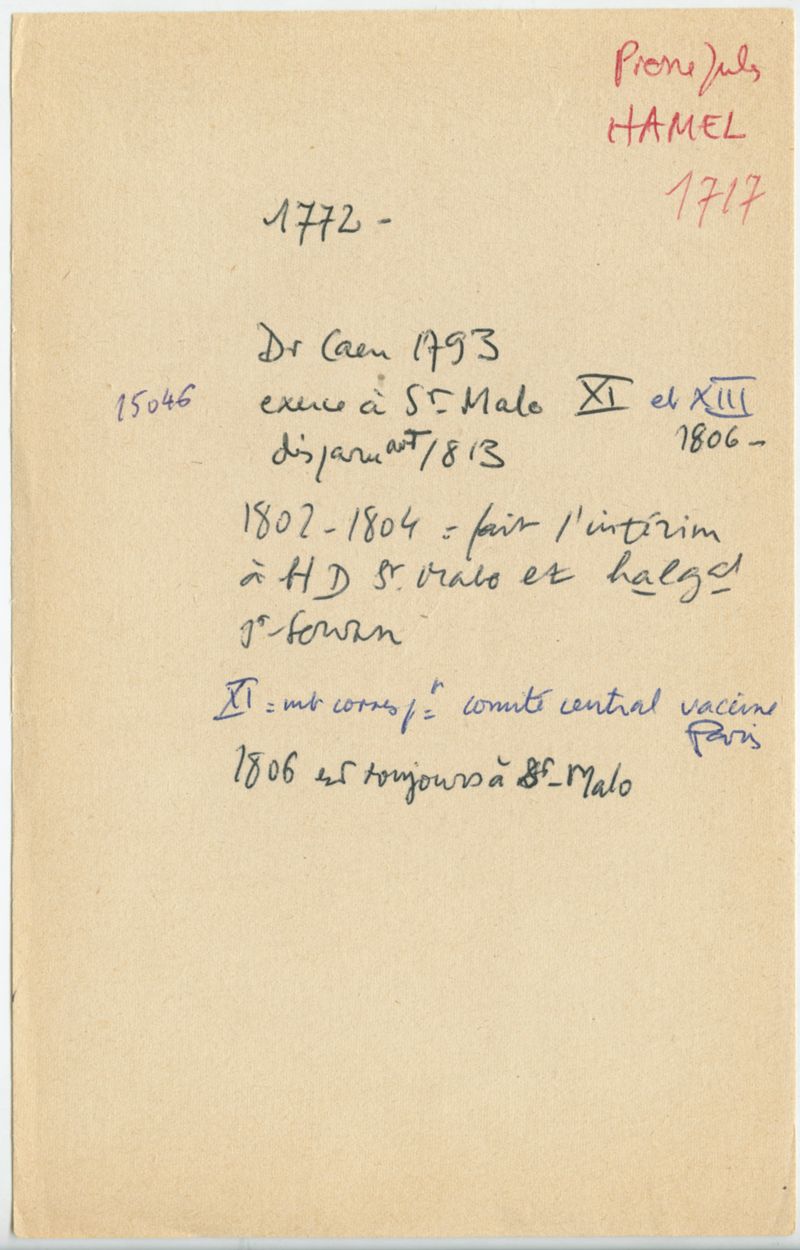 Pierre Jules
HAMEL
1717
1772 -
Dr Caen 1793
15046 exerce à St-Malo XI et XIII
1806 -
disparu avt 1813
1802-1804 = fait l'intérim
à HD St. Malo et
St-Servan
XI = mb corresp. comité central vaccine
Paris
1806 est toujours à St-Malo